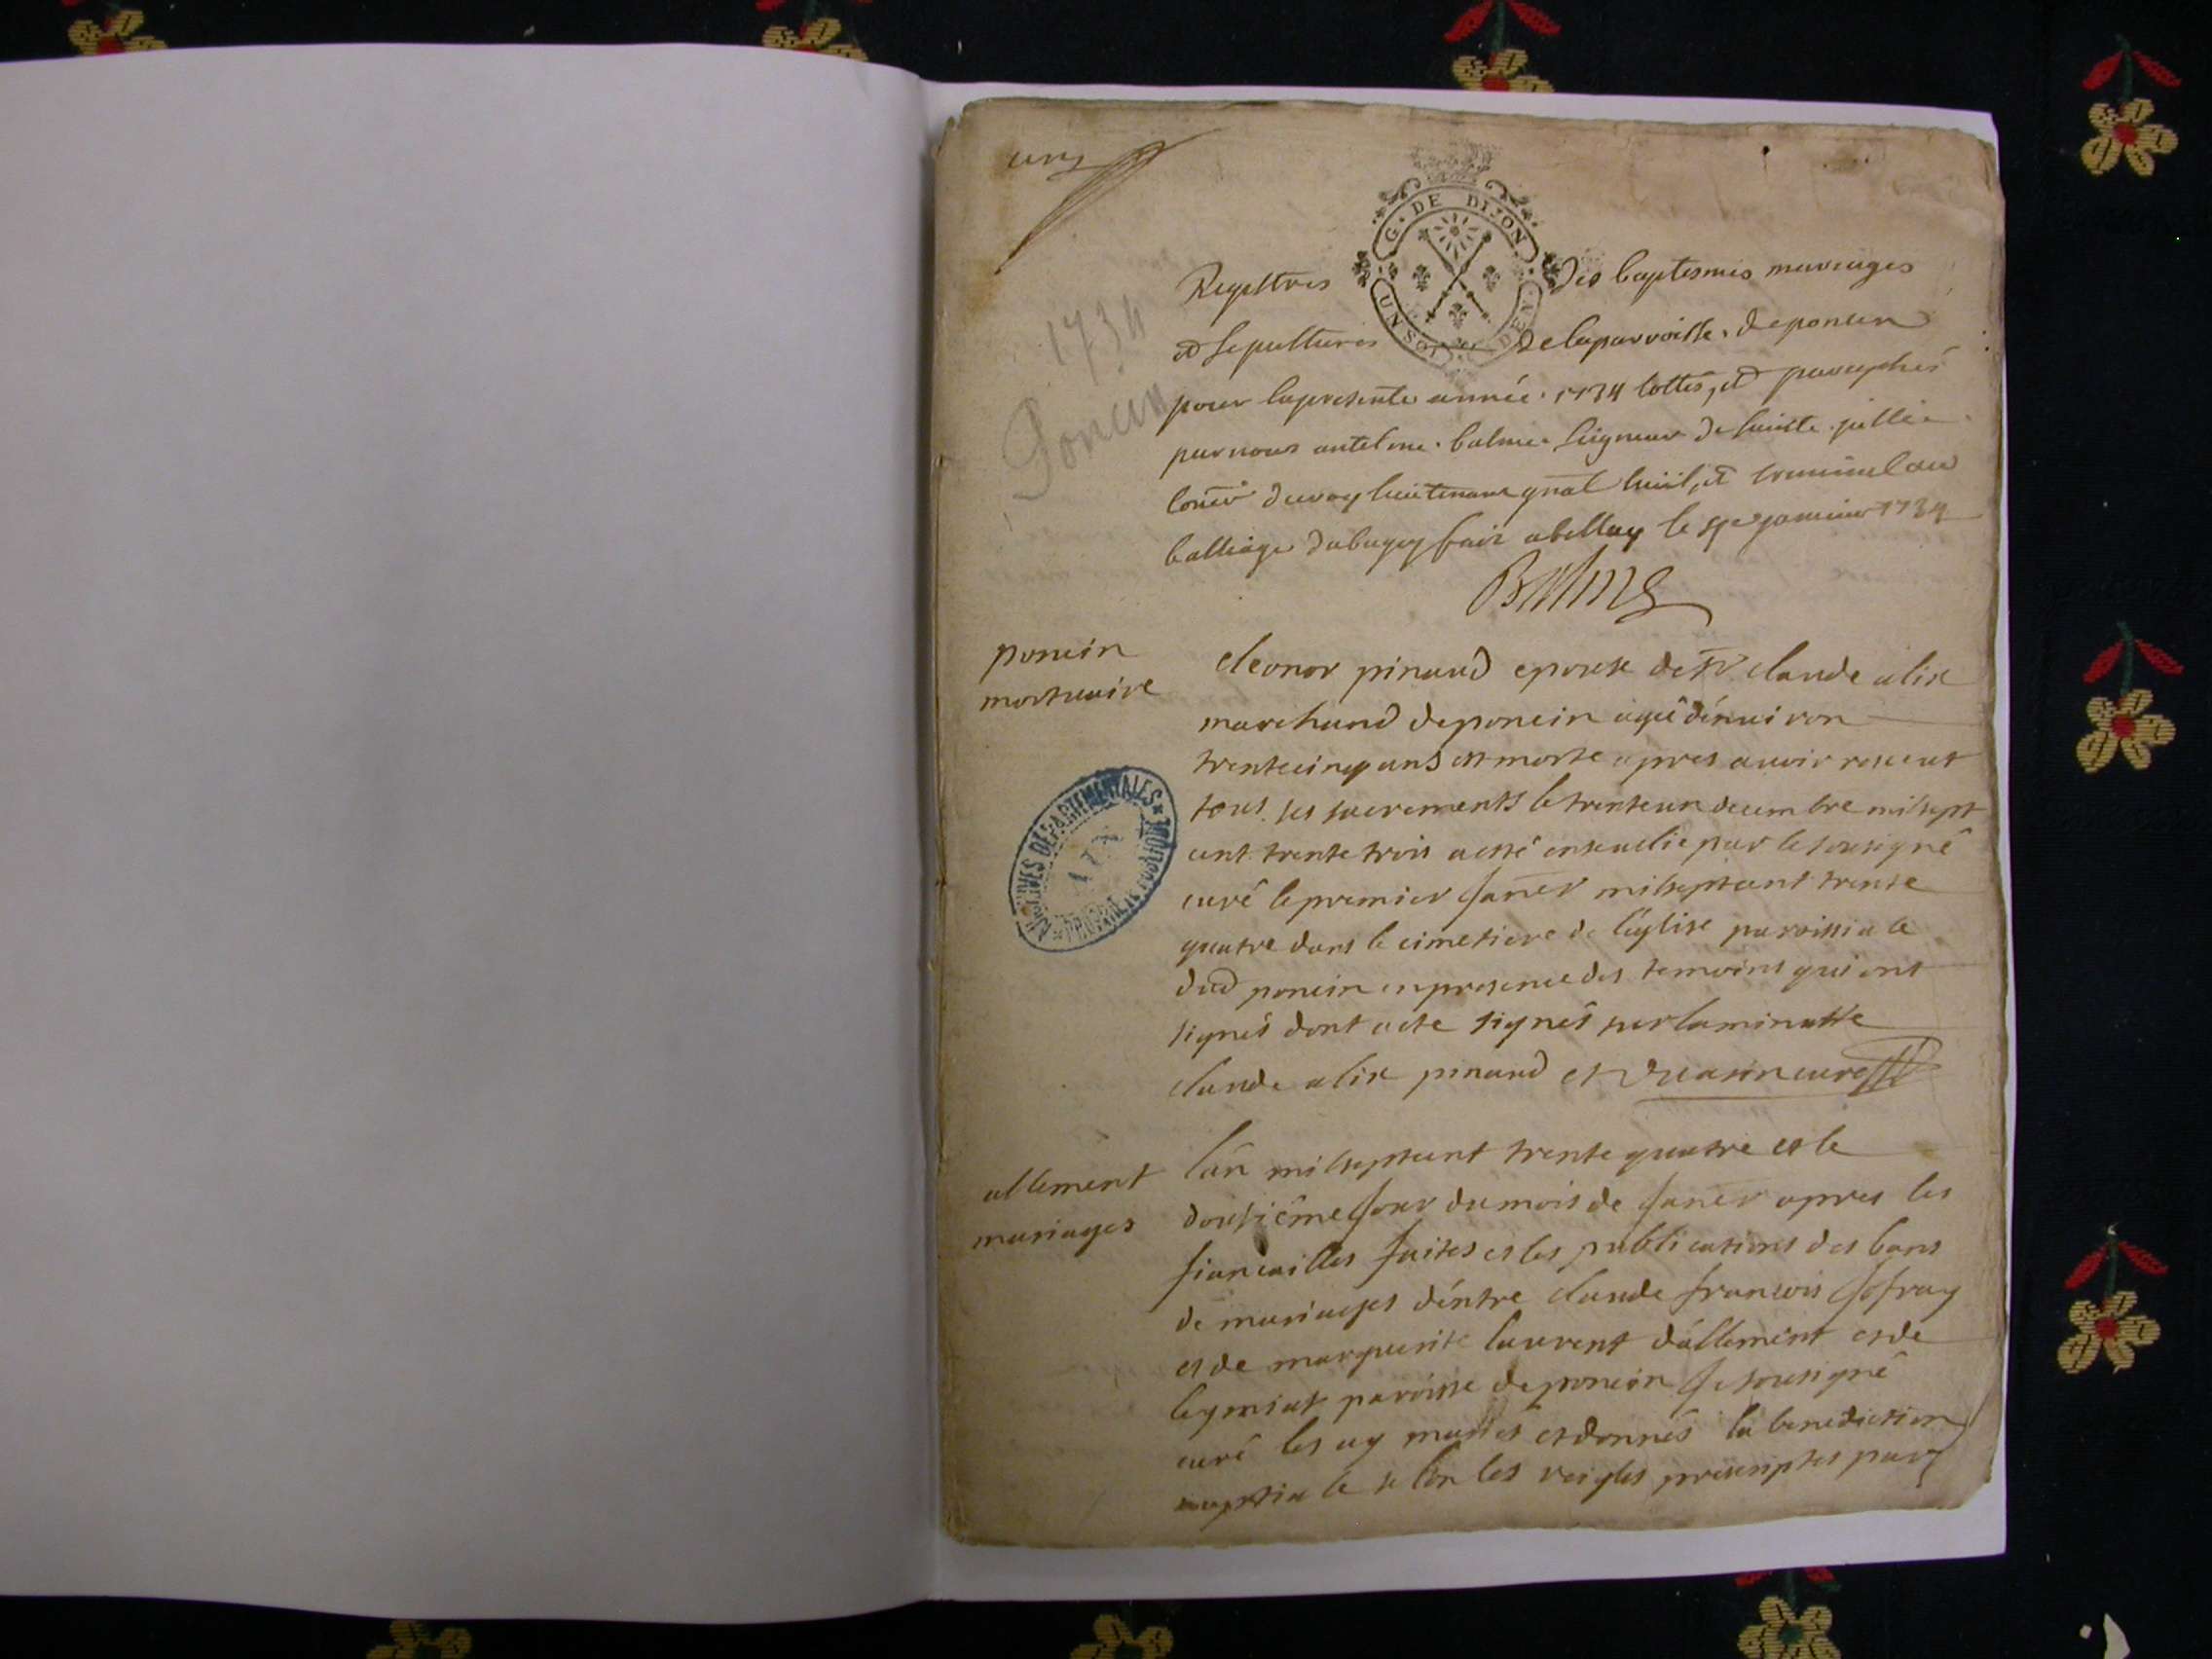 un
G. DE DIJON
UN SOL DEN.
1734
Poncin
Registres des baptesmes mariages
et sepultures de la parroisse de poncin
pour la presente année 1734 cottés, et paraphés
par nous antelme balme seigneur de sainte jullie
conêr du roy lieutenant gnãl civil, et criminel au
balliage du bugey fait a belley le janvier 1734
Balme
poncin
mortuaire
eleonor pinaud epouse de sr claude alix
marchand de poncin agé d'énuiron
trente cinq ans est morte apres auoir receut
tous ses sacrements le trente un decembre mil sept
cent trente trois a esté enseuelie par le sousigné
curé le premier janer mil sept cent trente
quatre dans le cimetiere de l'église paroissiale
dud poncin en presence des temoins qui ont
signés dont acte signés sur la minutte
claude alix pinaud et curé
ARCHIVES DÉPARTEMENTALES
AIN
PROPRIÉTÉ PUBLIQUE
allement
mariages
l'an mil sept cent trente quatre et le
dousiéme jour du mois de janer apres les
fiancailles faites et les publications des bans
de mariages d'éntre claude francois jofray
et de marguerite laurent d'allement et de
leymiat paroisse de poncin je sousigné
curé les ay mariés et donnés la benediction
nuptiale selon les reigles prescriptes par